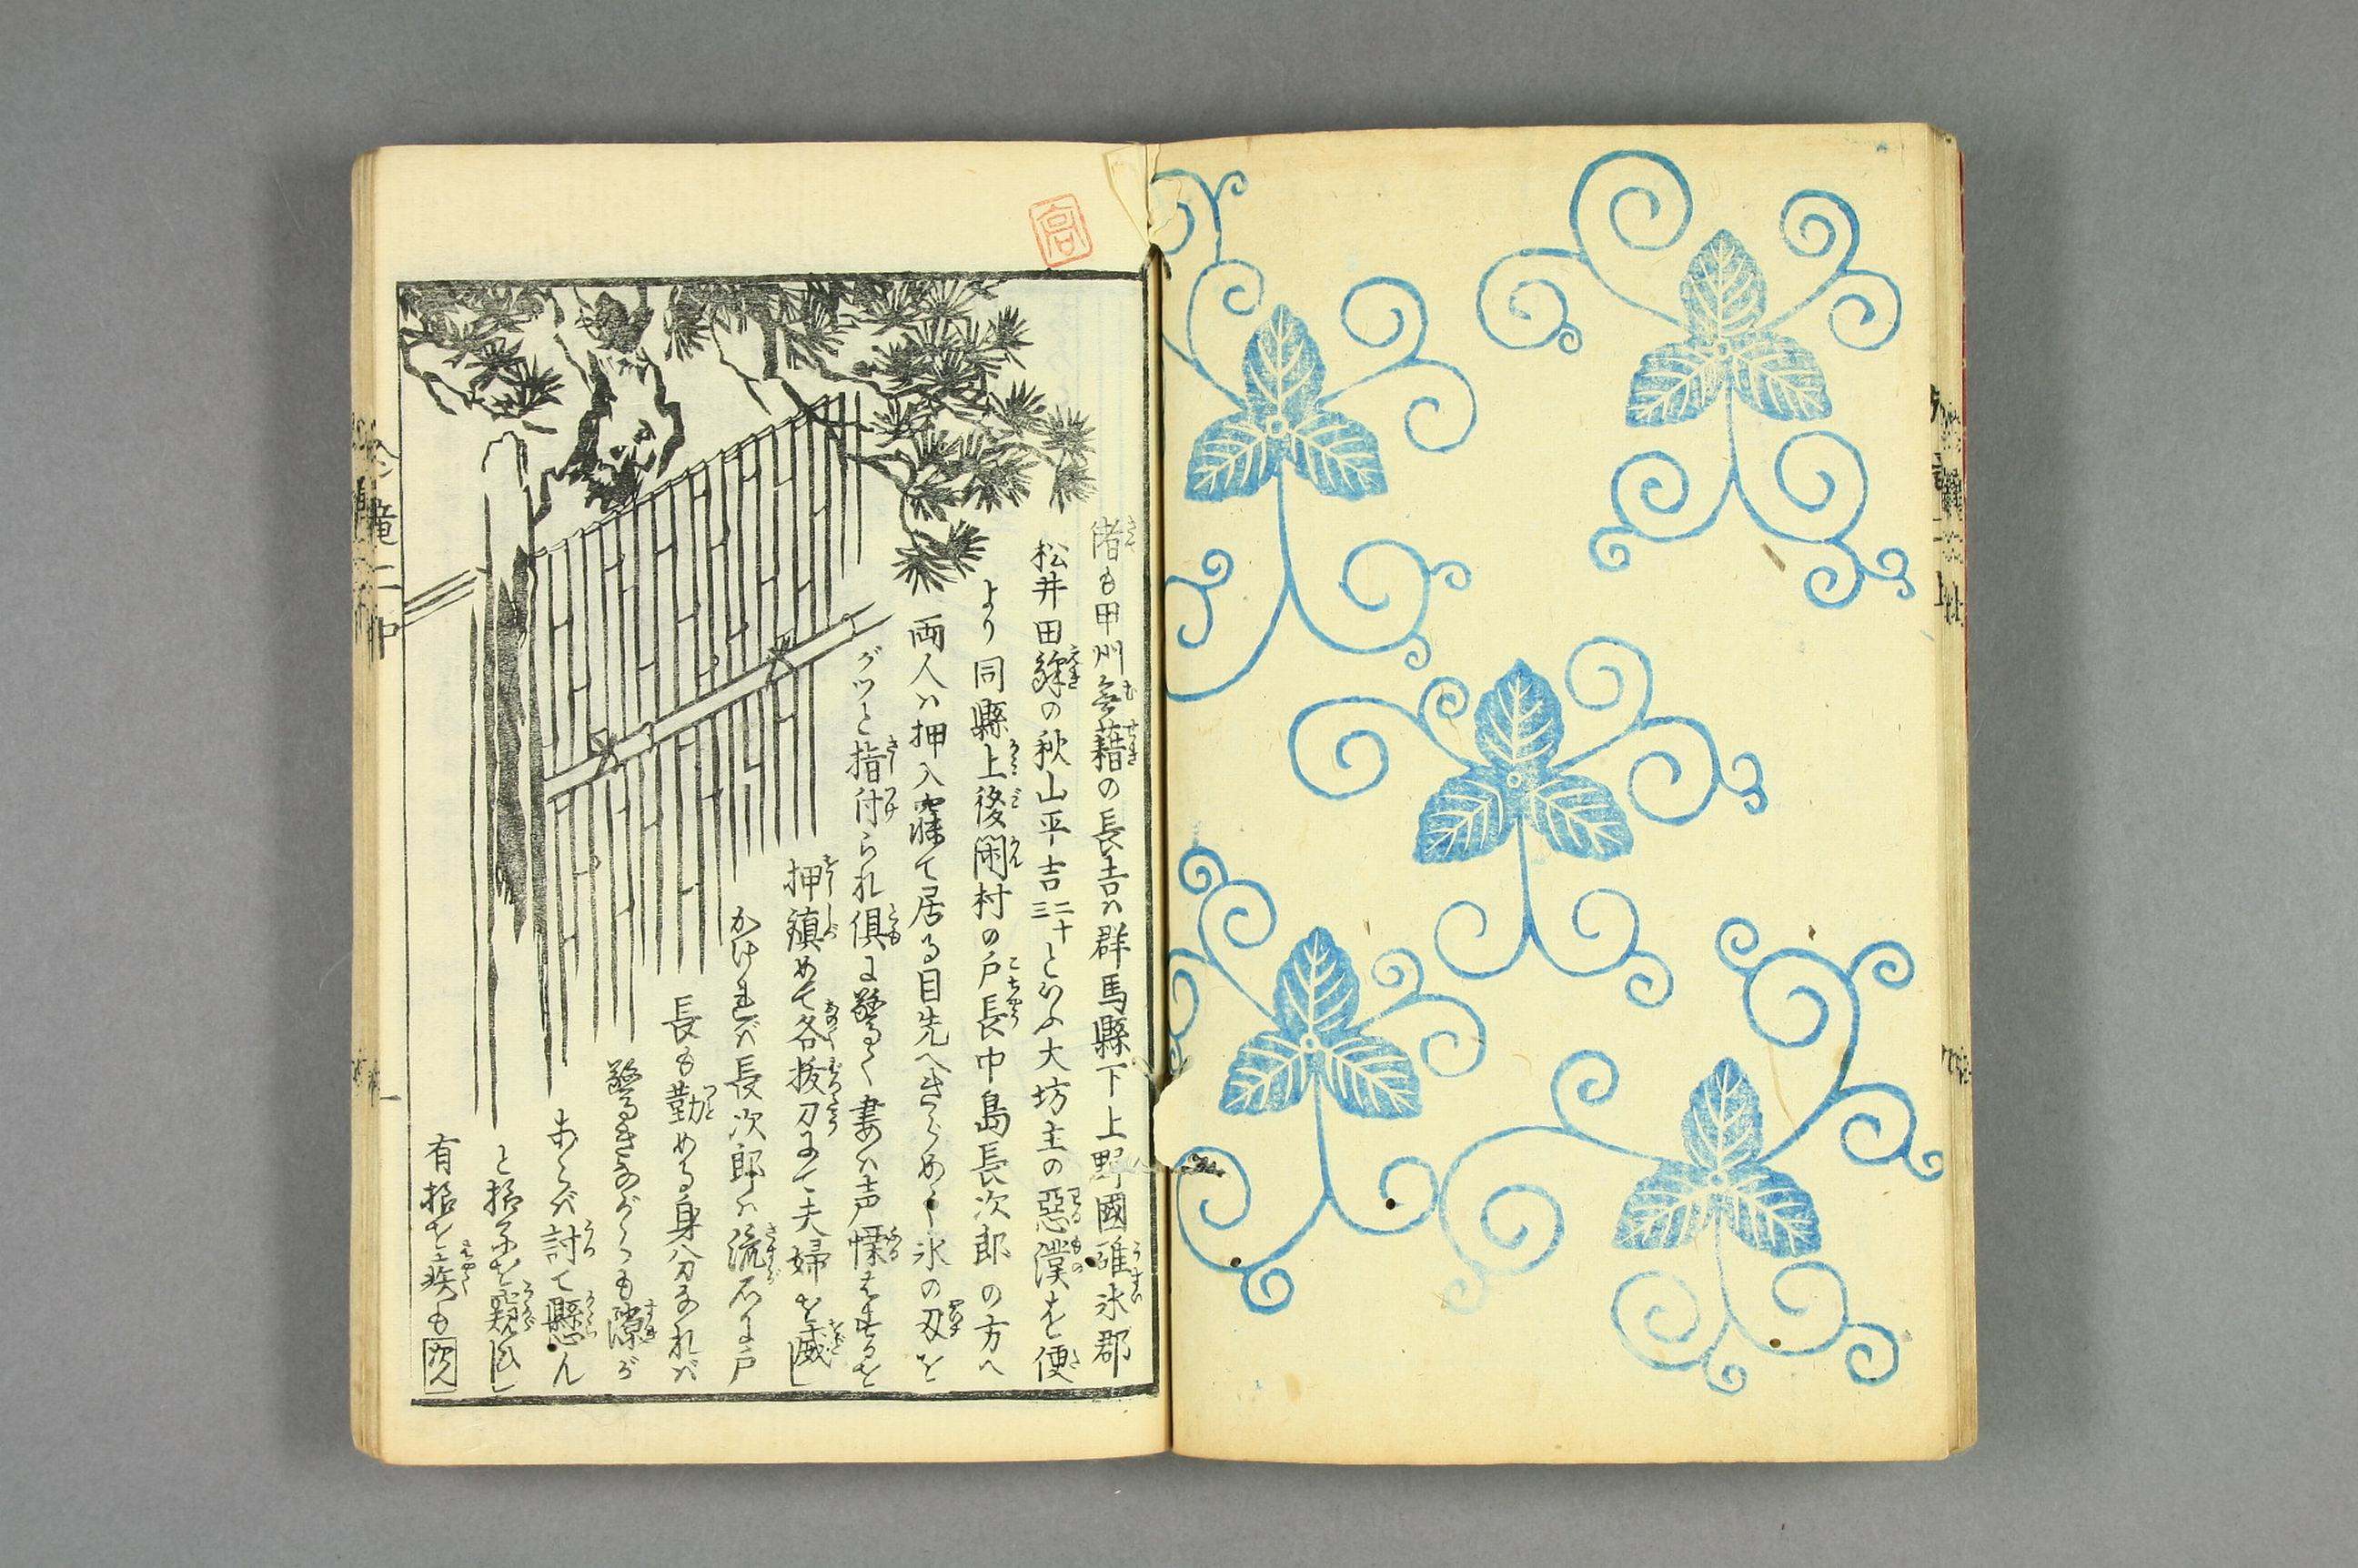 偖も甲州無藉の長吉ハ群馬縣下上野國碓氷郡
松井田繹の秋山平吉二十三といふ大坊主の惡漢を便
より同縣上後閑村の戸長中島長次郎の方へ
両人ハ押入寐て居る目先へきらめく氷の刄を
グツと指付られ倶に驚く妻ハ声慄はするを
押鎮めて各抜刀にて夫婦を威し
かけれバ長次郎ハ流石に戸
長も勤める身分なれバ
驚きながらも隙が
あらバ討て懸ん
と様子を窺ひし
有様を疾も